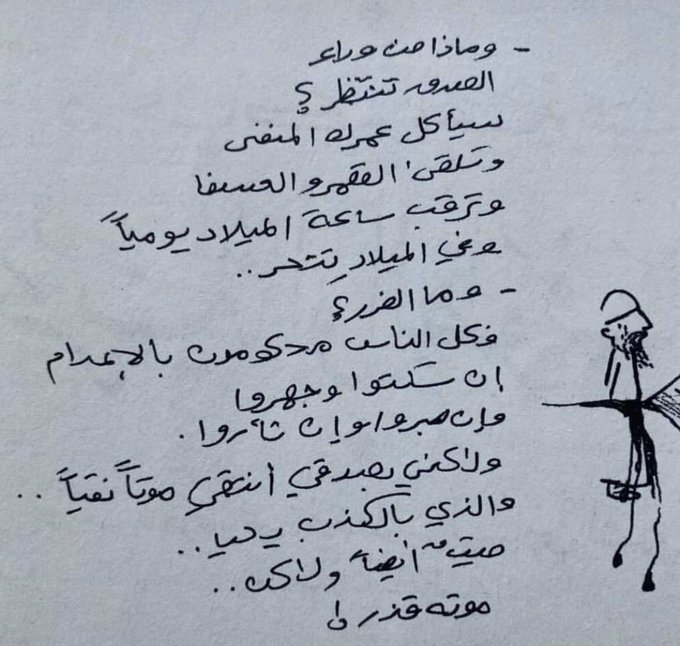 - وماذا من وراء
الصدق تنتظر؟
سيأكل عمرك المنفى
وتلقى القهر والعسفا
وترقب ساعة الميلاد يومياً
وفي الميلاد تنتحر..
- وما الضرر؟
فكل الناس محكومون بالإعدام
إن سكتوا وجهروا
وإن صبروا وإن ثأروا.
ولاكني بصدقي أنتقي موتاً نقياً..
والذي بالكذب يحيا..
ميتٌ أيضاً ولاكن..
موته قذر!